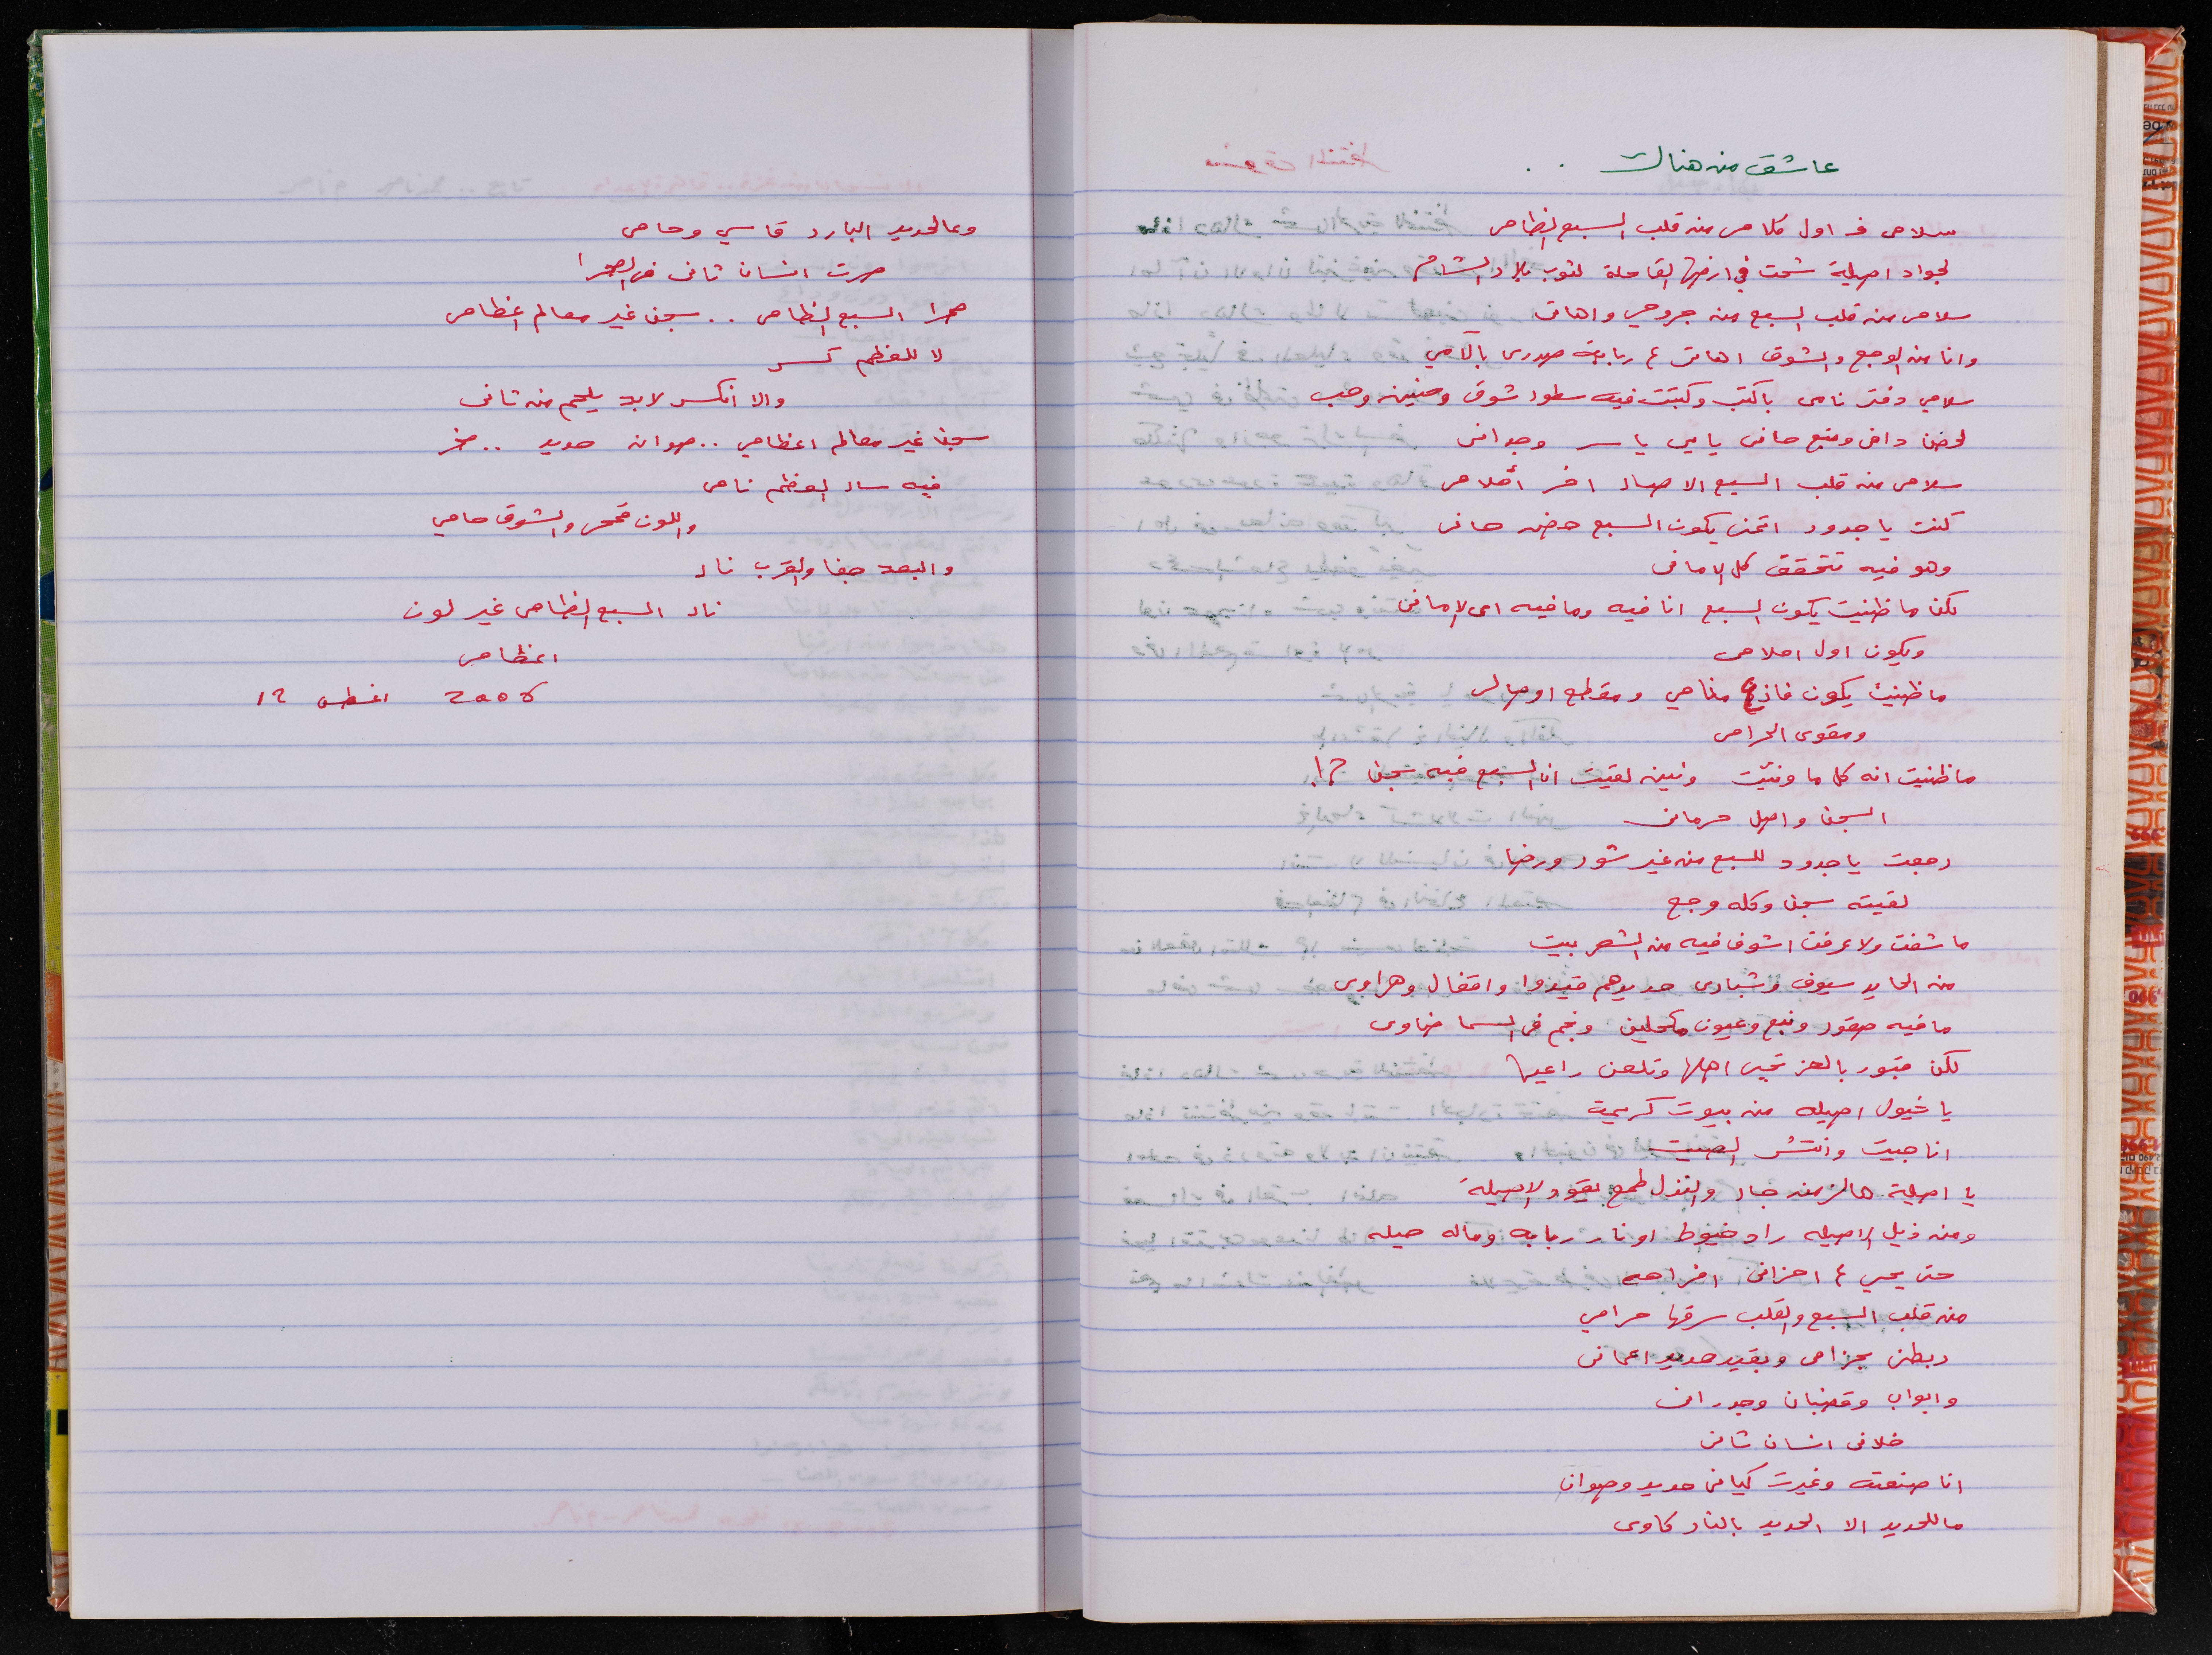 عاشق من هناك . .
سلامى فـ اول كلامى من قلب السبع النظامى
لجواد اصيلة شمت في ارضها القاحلة لثوب بلاد الشام
سلامى من قلب السبع من جروحي واهاتى
وانا من الوجع والشوق اهاتى ع ربابة صدرى بالامي
سلامي دفتر نامى باكتب وكتبت فيه سطور شوق وحنين وحب
لحضن دافى ومنبع حانى يامي ياسر وجدانى
سلامى من قلب السبع الاصيل اخر أقلامى
كنت يا جدود اتمنى يكون السبع حضن حانى
وهو فيه تتحقق كل الامانى
لكن ما ظنيت يكون السبع انا فيه ومافيه اى الامانى
ويكون اول احلامى
ما ظنيت يكون فازع منامي ومقطع اوصالى
ومقوى الحرامى
ما ظنيت انه كل ما ونيّت ونين لقيت ان السبع فيه سجن ؟!
السجن واصل حرمانى
رجعت يا جدود للسبع من غير شور ورضا
لقيته سجن وكله وجع
ما شفت ولا عرفت اشوف فيه من الشعر بيت
من الحايد سيوف وشبارى حديدهم قيدوا واقفال وهراوى
ما فيه صقور ونبع وعيون مكحلين ونجم فى السما ضاوى
لكن قبور بالعز تحيى اهلها وتلعن راعيها
يا خيول اصيله من بيوت كريمة
انا جيت وانتشر الصيت
يا اصيلة هالزمن جار والنذل طمع يقود الاصيلة
ومن ذيل الاصيله راد خيوط اوتار ربابه وماله حيله
حتى يحيي ع احزانى افراحه
من قلب السبع والقلب سرقها حرامي
ربطنى بحزامى وبقيد حديد اعمانى
وابواب وقضبان وجدرانى
خلانى انسان تانى
انا صنعته وغيرت كيانى حديد وصوان
ماللحديد الا الحديد بالنار كاوى
وعالحديد البارد قاسي وحامى
صرت انسان تانى فى الصحرا
صحرا السبع النظامى . . سجن غير معالم اعظامى
لا للعظم كسر
والا انكسر لابد يلحم من تانى
سجن غير معالم اعظامي .. صوان حديد .. صخر
فيه سار العظم نامى
واللون قمحى والشوق حامي
والبعد جفا والقرب نار
نار السبع النظامى غير لون
اعظامى
12 اغسطس 2005